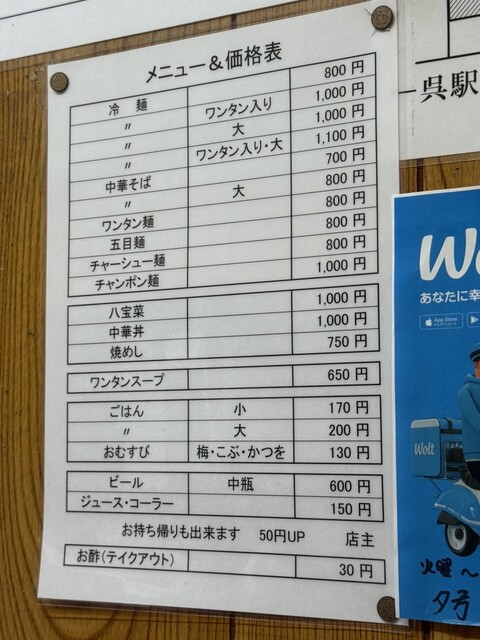 メニュー＆価格表
冷 麺 800 円
〃 ワンタン入り 1,000 円
〃 大 1,000 円
〃 ワンタン入り・大 1,100 円
中華そば 700 円
〃 大 800 円
ワンタン麺 800 円
五目麺 800 円
チャーシュー麺 800 円
チャンポン麺 1,000 円
八宝菜 1,000 円
中華丼 1,000 円
焼めし 750 円
ワンタンスープ 650 円
ごはん 小 170 円
〃 大 200 円
おむすび 梅・こぶ・かつを 130 円
ビール 中瓶 600 円
ジュース・コーラー 150 円
お持ち帰りも出来ます 50円UP 店主
お酢(テイクアウト) 30 円
呉駅
Wo
あなたに幸
App Store
Wolt
火曜 ～